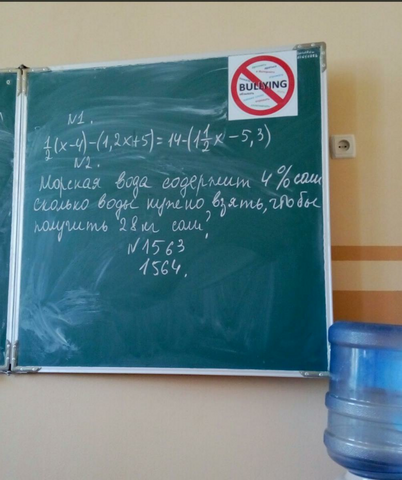 BULLYING
N1.
½(x-4)-(1,2x+5)=14-(1½x-5,3)
N2.
Морская вода содержит 4% соли
сколько воды нужно взять, чтобы
получить 28 кг соли?
N1563
1564.